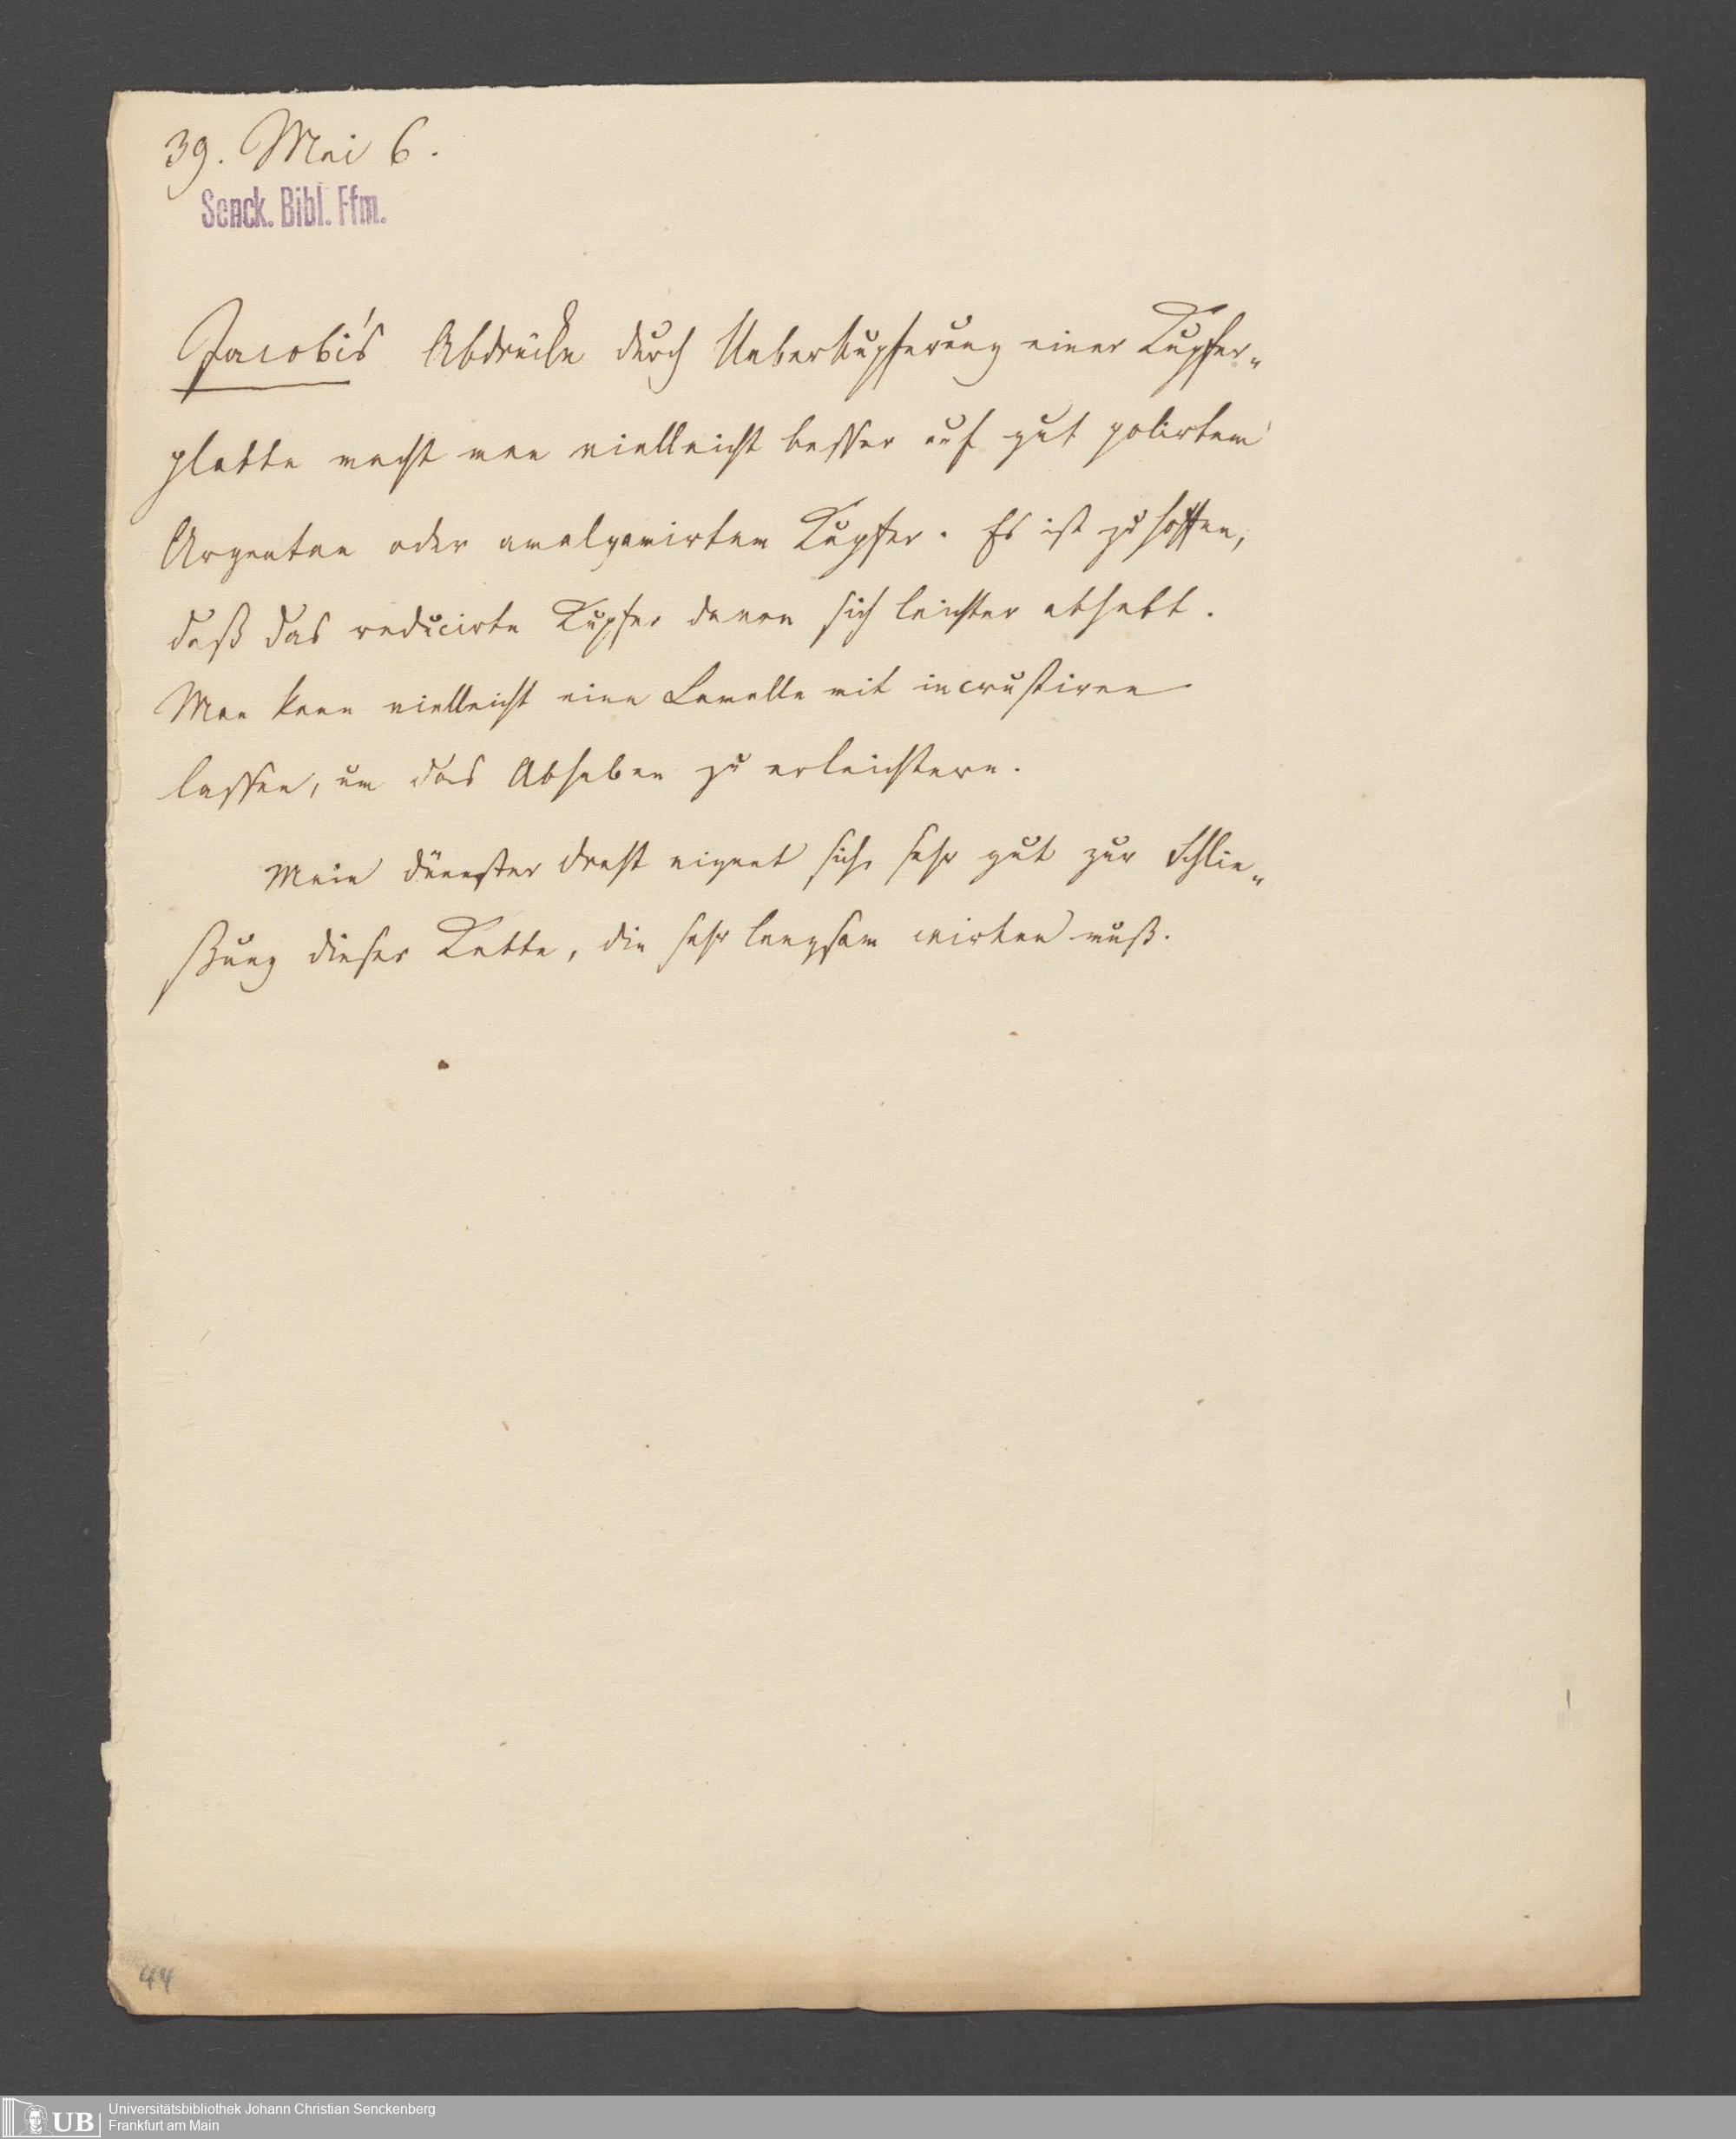 39. Mai 6.
Senck. Bibl. Ffm.
Jacobi's Abdrücke durch Ueberkupferung einer Kupfer„
platte macht man vielleicht besser auf gut polirtem
Argentan oder amalgamirtem Kupfer. Es ist zu hoffen,
daß das reducirte Kupfer davon sich leichter abhebt.
Man kann vielleicht eine Lamelle mit incrustiren
lassen, um das Abheben zu erleichtern.
Mein dünnster Draht eignet sich sehr gut zur Schlie„
ßung dieser Kette, die sehr langsam wirken muß.
44
UB
Universitätsbibliothek Johann Christian Senckenberg
Frankfurt am Main